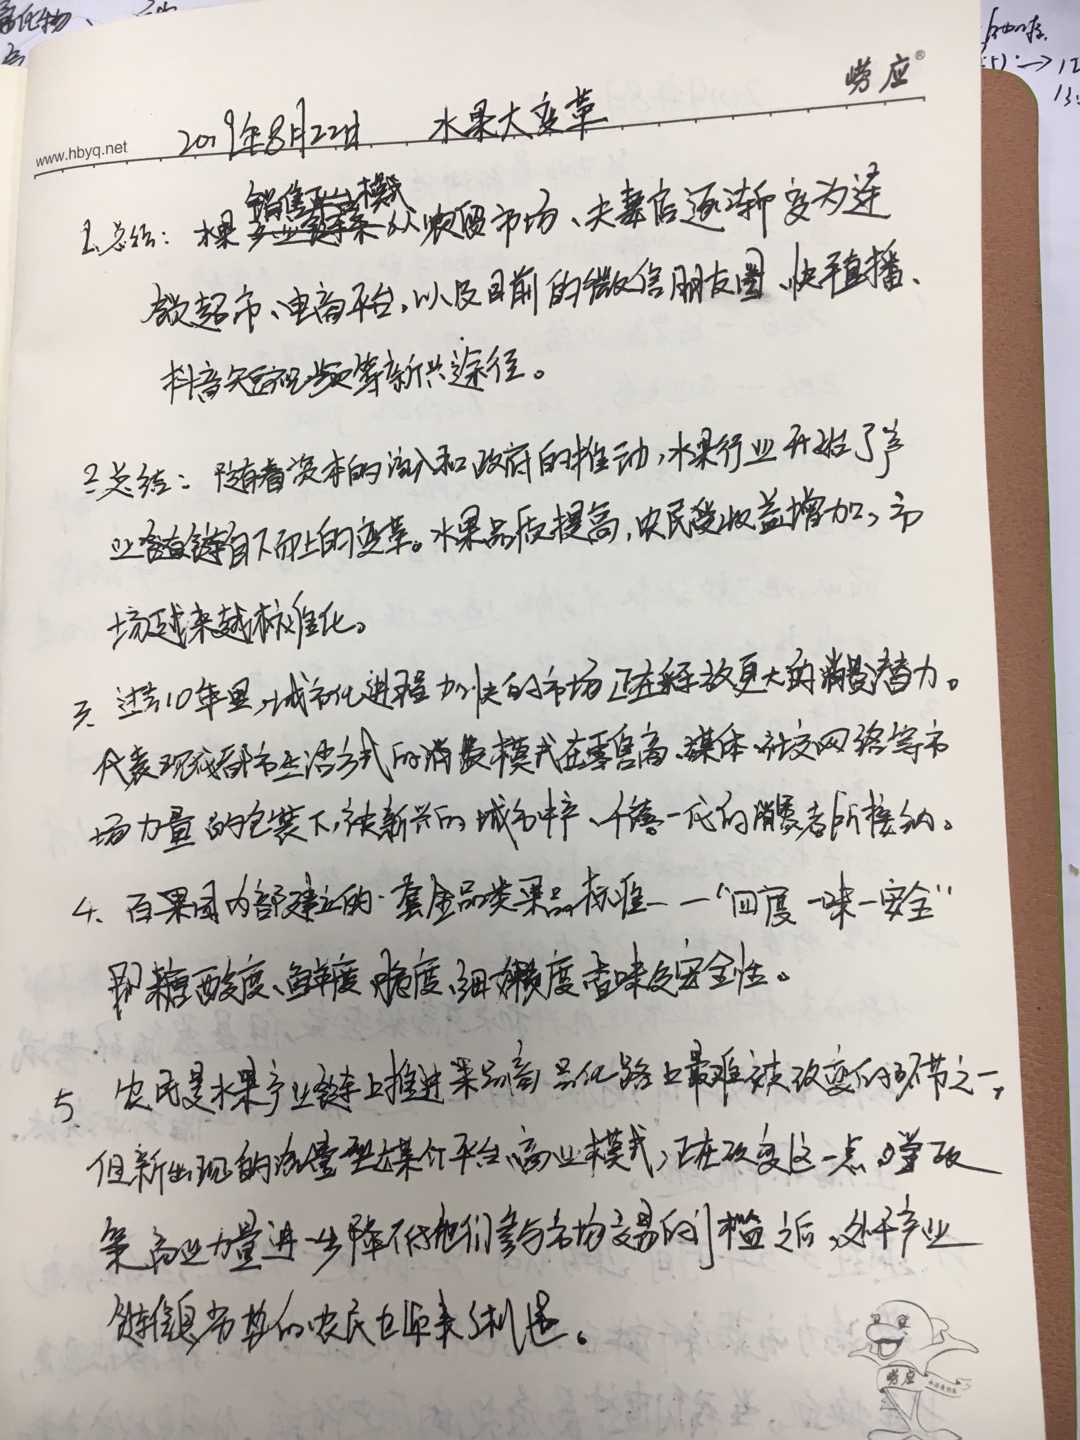 崂应®
www.hbyq.net
2019年8月22日 水果大变革
销售平台模式
1.总结：水果产业链条从农贸市场、夫妻店逐渐变为连
锁超市、电商平台，以及目前的微信朋友圈、快手直播、
抖音短视频等新兴途径。
2.总结：随着资本的流入和政府的推动，水果行业开始了产
业链自下而上的变革。水果品质提高，农民收益增加，市
场越来越标准化。
3、过去10年里，城市化进程加快的市场正在释放更大的消费潜力。
代表现代都市生活方式的消费模式在零售商、媒体、社交网络等市
场力量的包装下，被新兴的城市中产、千禧一代的消费者所接纳。
4、百果园内部建立的一套全品类果品标准——"四度一味一安全"
即糖酸度、鲜度、脆度、细嫩度香味及安全性。
5、农民是水果产业链上推进果品商品化路上最难被改变的环节之一，
但新出现的流量型媒介平台、商业模式，正在改变这一点。当政
策商业力量进一步降低他们参与市场交易的门槛之后，处于产业
链信息劣势的农民也迎来了机遇。
崂应